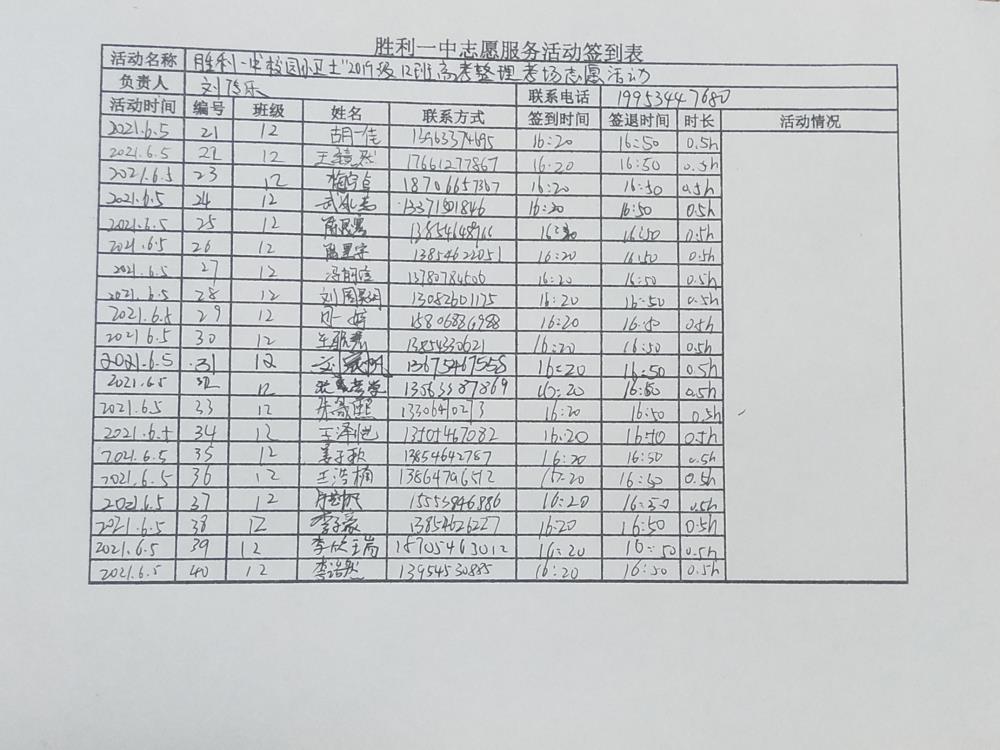 胜利一中志愿服务活动签到表
活动名称 胜利一中"校园小卫士"2019级12班高考整理考场志愿活动
负责人 联系电话 19953447680
活动时间 编号 班级 姓名 联系方式 签到时间 签退时间 时长 活动情况
2021.6.5 21 12 胡一佳 13963374895 16:20 16:50 0.5h
2021.6.5 22 12 17661277867 16:20 16:50 0.5h
2021.6.5 23 12 18706657367 16:20 16:50 0.5h
2021.6.5 24 12 13371501846 16:20 16:50 0.5h
2021.6.5 25 12 16:50 0.5h
2021.6.5 26 12 13854622051 16:20 16:50 0.5h
2021.6.5 27 12 16:20 16:50 0.5h
2021.6.5 28 12 13082601175 16:20 16:50 0.5h
2021.6.5 29 12 15806886988 16:20 16:50 0.5h
2021.6.5 30 12 13854330621 16:20 16:50 0.5h
2021.6.5 31 12 13675467558 16:20 16:50 0.5h
2021.6.5 32 12 13563387869 16:20 16:50 0.5h
2021.6.5 33 12 16:20 16:50 0.5h
2021.6.5 34 12 王泽恺 13505467082 16:20 16:50 0.5h
2021.6.5 35 12 姜子秋 13854642787 16:20 16:50 0.5h
2021.6.5 36 12 王浩楠 13864796512 16:20 16:50 0.5h
2021.6.5 37 12 15553946886 16:20 16:50 0.5h
2021.6.5 38 12 李子豪 13854626227 16:20 16:50 0.5h
2021.6.5 39 12 李欣瑞 18705463012 16:20 16:50 0.5h
2021.6.5 40 12 李浩然 13954530885 16:20 16:50 0.5h